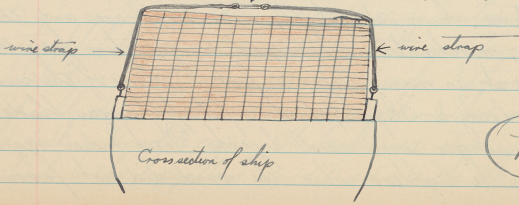 wire strap
wire strap
Cross section of ship